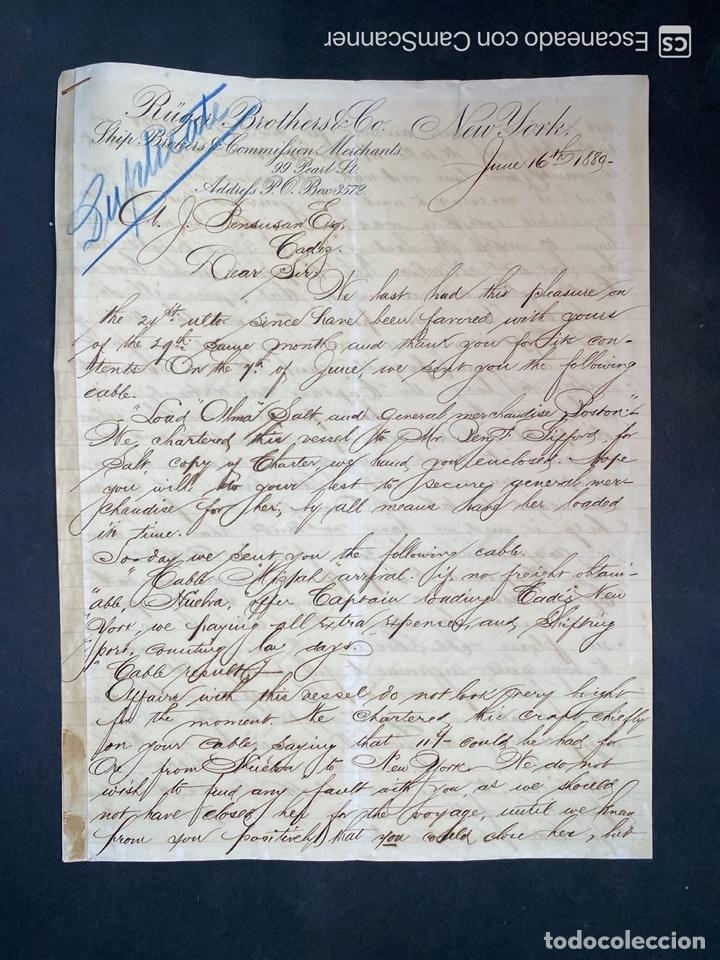 Escaneado con CamScanner
CS
Duplicate
Rüger Brothers & Co. New York,
Ship Brokers & Commission Merchants.
99 Pearl St.
Address P.O. Box 3572.
June 16th 1889-
J. Bensusan Esq.
Cadiz.
Dear Sir,
We last had this pleasure on
the ulto. since have been favored with yours
of the 29th same month and thank you for con-
tents. On the 7th of June, we sent you the following
cable.
"Load "Alma" Salt, and general merchandise Boston".
We chartered this vessel to Mr for
Salt, copy of Charter we hand you enclosed. Hope
you will do your best to secure general mer-
chandise for her, by all means have her loaded
in time.
To-day we sent you the following cable.
"Cable "Mizpah" arrival. if no freight obtain-
"able, Huelva, offer Captain loading Cadiz New
"York, we paying all extra expenses, and shifting
"port, counting lay days."
"Cable result,"
Affairs with this vessel do not look very bright
for the moment. We chartered this craft, chiefly
on your cable, saying that 11/- could be had for
Ore from Huelva to New York. We do not
wish to find any fault with you, as we should
not have closed her for the voyage, until we knew
from you positively that you could close her, but
todocoleccion